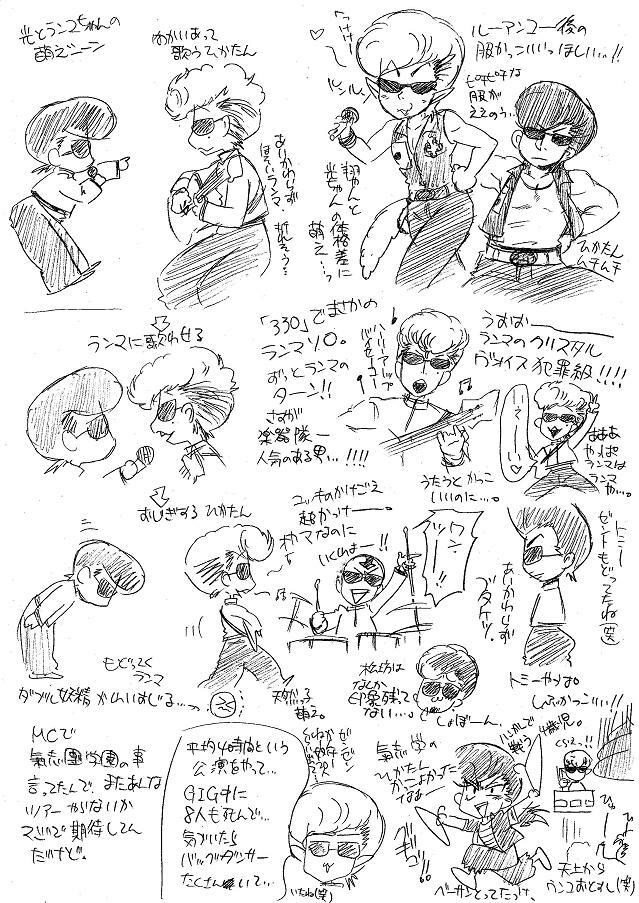 光とランコちゃんの
萌えシーン
むかいあって
歌うひかたん
あいかわらず
ほそいランマ。
「うけけー
ルンルン
翔やんと
光ちゃんの体格差に
萌え…。
ルーアンコー後の
服かっこいいっほしい…!!
ピチピチな
服が
ええのう…
ひかたん
ムチムチ
ランマに歌わせる
「330」でまさかの
ランマソロ。
ずっとランマの
ターン!!
さすが
楽器隊一
人気のある男…!!!!
うむむ
ランマのクリスタル
ヴォイス犯罪級!!!!
うたうとかっこ
いいのに…。
あああ
やっぱ
ランマは
ランマ
や…。
おじぎする ひかたん
ユッキのかけごえ
超かっけー。
オカマなのに
いくわよー!!
トミー
ゼントもどってたね(笑)
あいかわらず
ブタケツ。
トミーやっぱ
しぶかっこいい!!
もどってく
ランマ
天然っ子
萌え。
ダブル妖精 かわいすぎる…っ
松坊は
なんか
印象残って
ない…。
しょぼーん。
MCで
氣志團学園の事
言ってたんで、またあんな
ツアー やんないか
マジで期待してん
だけど。
平均4時間という
公演をやって…
GIG中に
8人も死んで…
気がいたら
バックダンサー
たくさんいて…
いたね(笑)
氣志学の
ひかたん
かっこよかった
なぁー
4歳児。
ベーサンとってたっけ。
天上から
ウンコおとすし(笑)